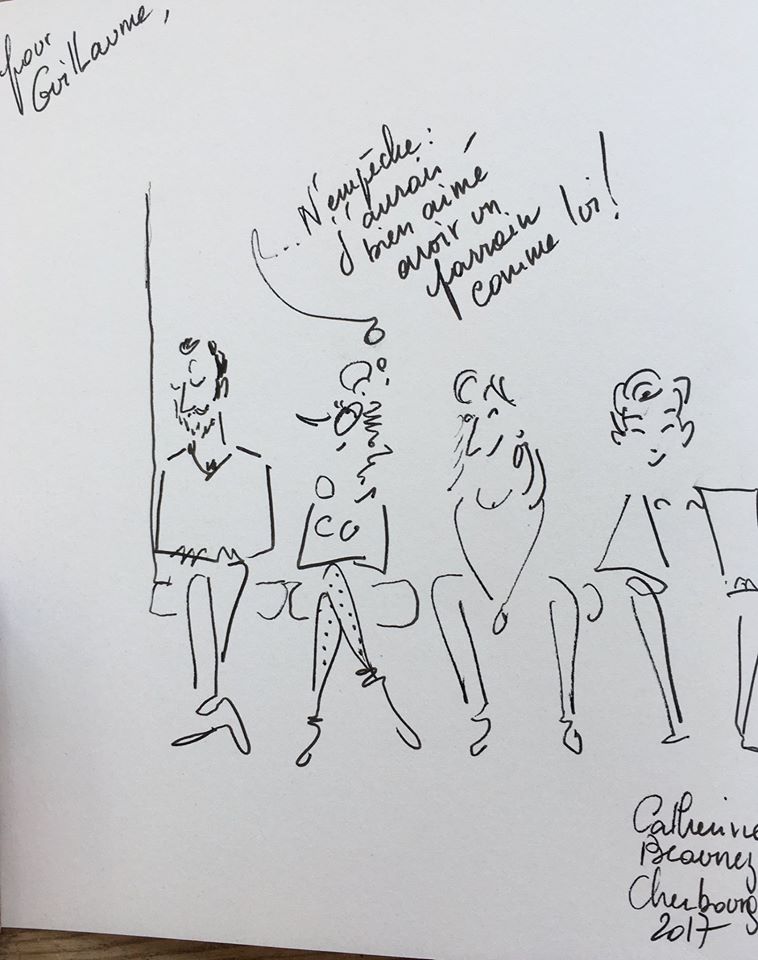 pour
Guillaume,
... N'empêche :
J'aurais
bien aimé
avoir un
parrain
comme lui !
Catherine
Beaunez
Cherbourg
2017